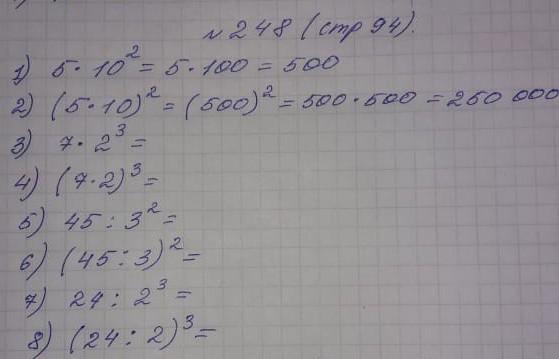 № 248 (стр 94).
1) 5 · 10² = 5 · 100 = 500
2) (5 · 10)² = (500)² = 500 · 500 = 250 000
3) 7 · 2³ =
4) (7 · 2)³ =
5) 45 : 3² =
6) (45 : 3)² =
7) 24 : 2³ =
8) (24 : 2)³ =